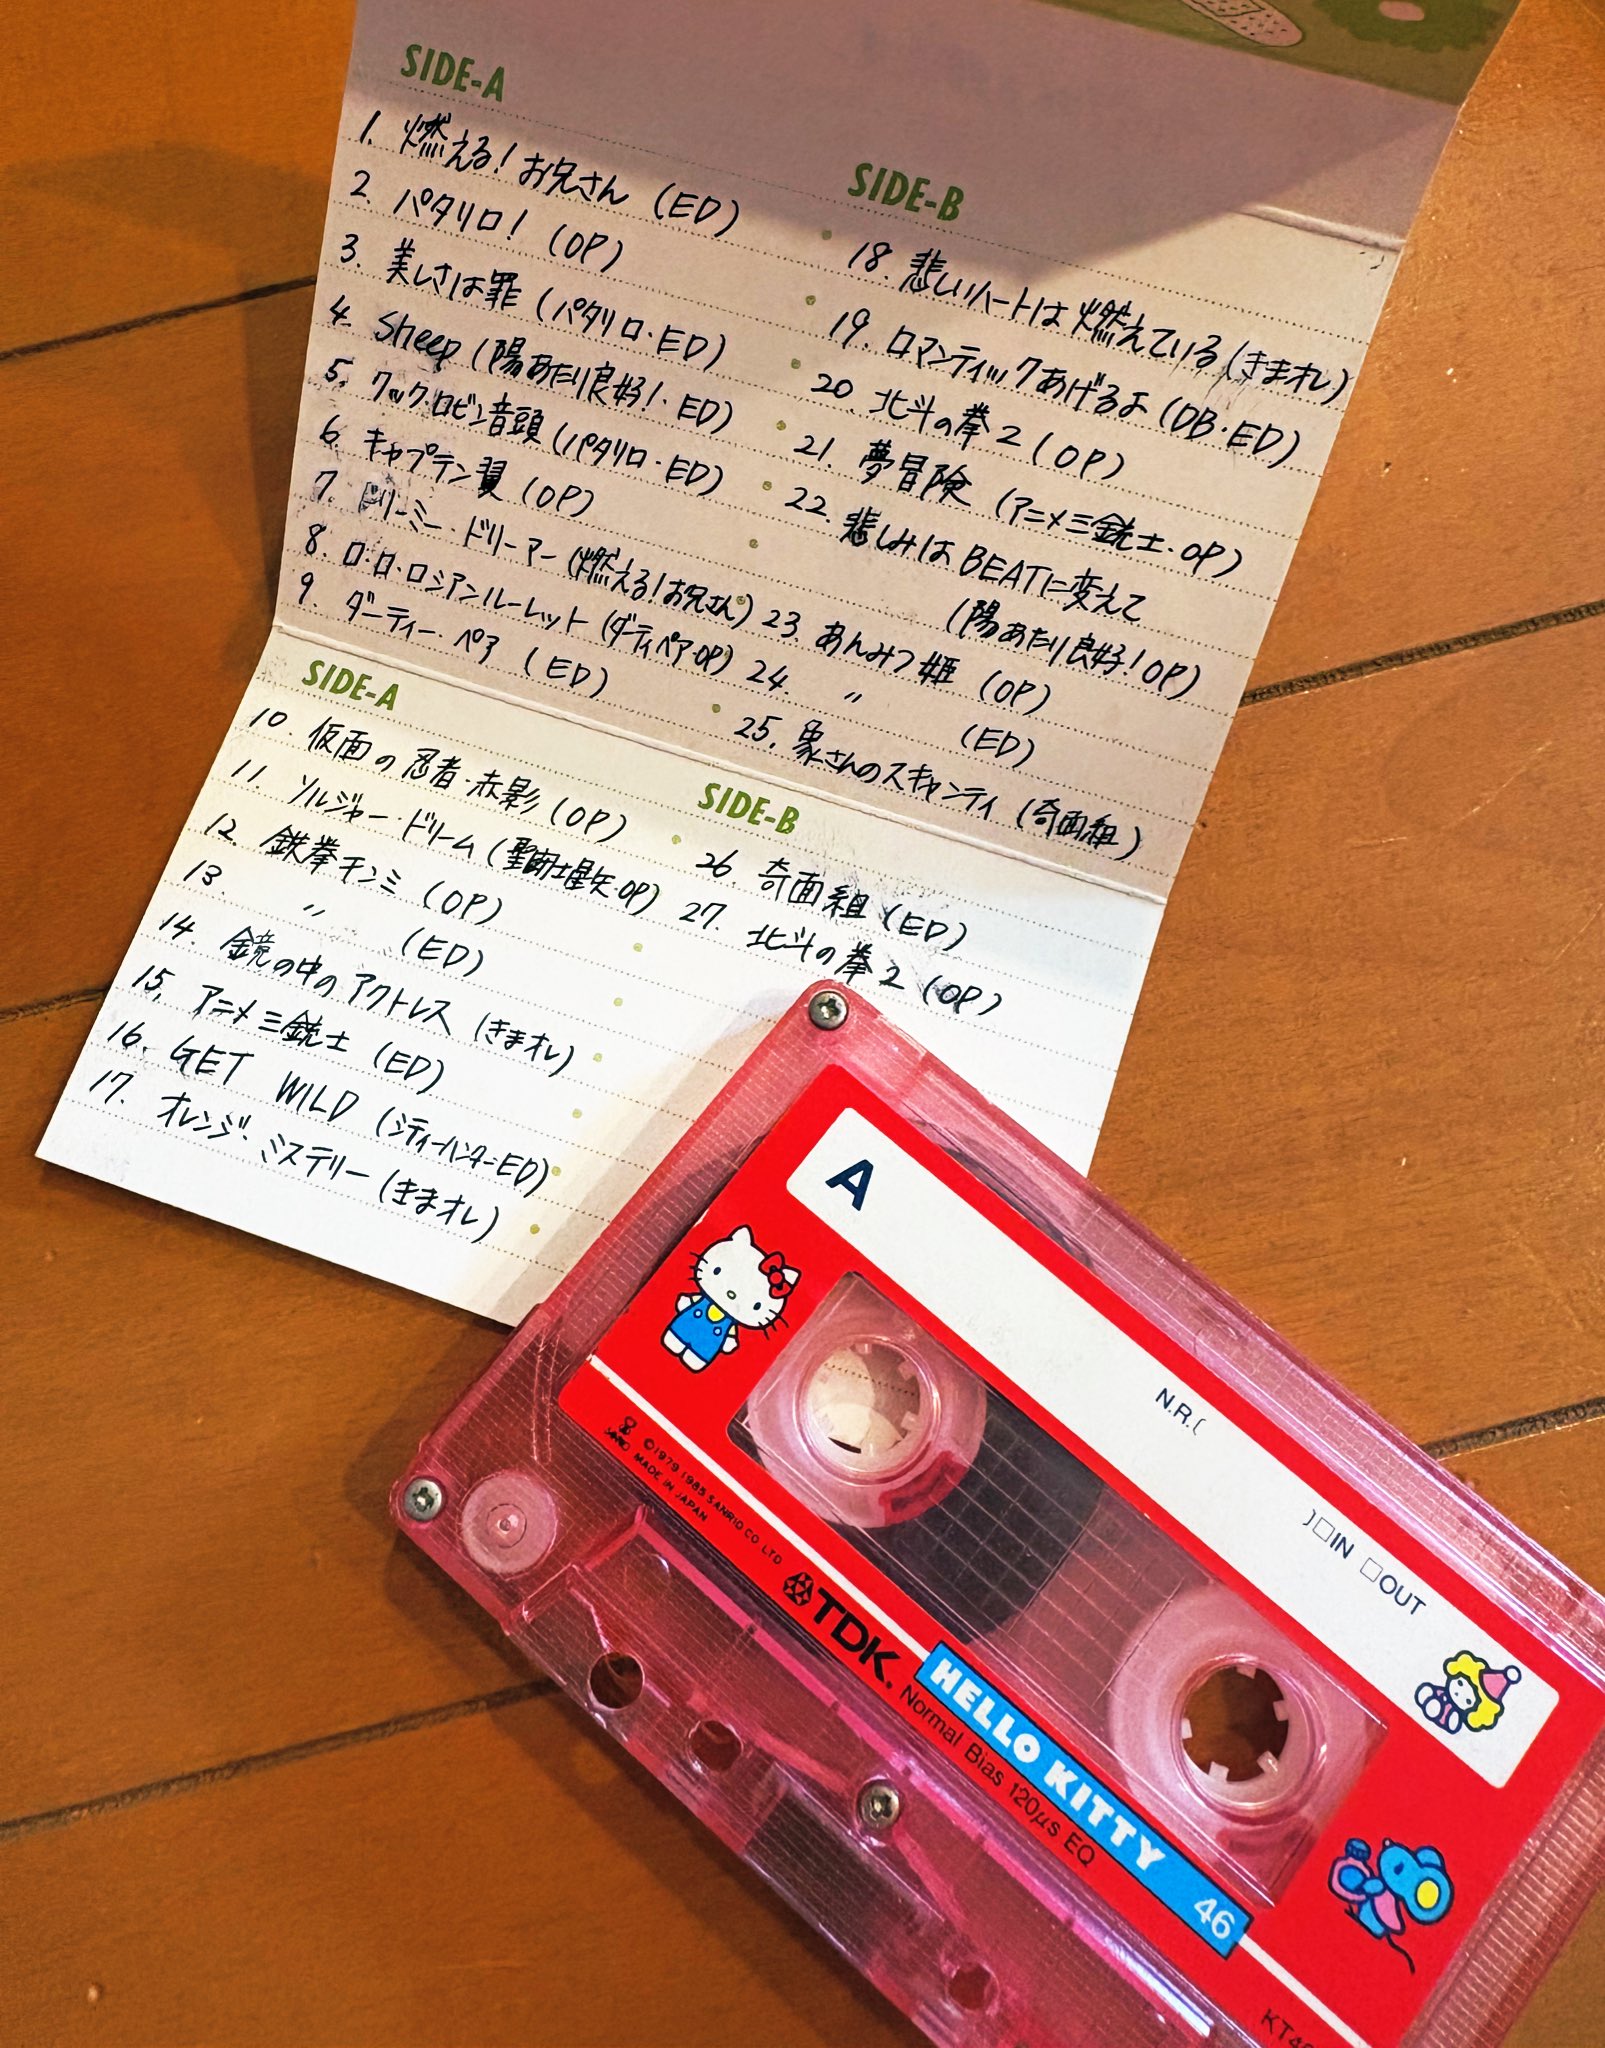 SIDE-A
1. 燃える!お兄さん (ED)
2. パタリロ! (OP)
3. 美しさは罪 (パタリロ・ED)
4. Sheep (陽あたり良好!・ED)
5. クック・ロビン音頭 (パタリロ・ED)
6. キャプテン翼 (OP)
7. ドリーミー・ドリーアー (燃える!お兄さん)
8. ロ・ロ・ロシアンルーレット (ダーティペア・OP)
9. ダーティー・ペア (ED)
SIDE-B
18. 悲しいハートは燃えている (きまオレ)
19. ロマンティックあげるよ (DB・ED)
20. 北斗の拳2 (OP)
21. 夢冒険 (アニメ三銃士・OP)
22. 悲しみはBEATに変えて
(陽あたり良好!OP)
23. あんみつ姫 (OP)
24. 〃 (ED)
25. 象さんのスキャンティ (奇面組)
SIDE-A
10. 仮面の忍者・赤影 (OP)
11. ソルジャー・ドリーム (聖闘士星矢・OP)
12. 鉄拳チンミ (OP)
13. 〃 (ED)
14. 鏡の中のアクトレス (きまオレ)
15. アニメ三銃士 (ED)
16. GET WILD (シティーハンターED)
17. オレンジ・ミステリー (きまオレ)
SIDE-B
26. 奇面組 (ED)
27. 北斗の拳2 (OP)
A
N.R.(
)□IN □OUT
©1979 1985 SANRIO CO., LTD.
MADE IN JAPAN
TDK.
HELLO KITTY 46
Normal Bias 120μs EQ